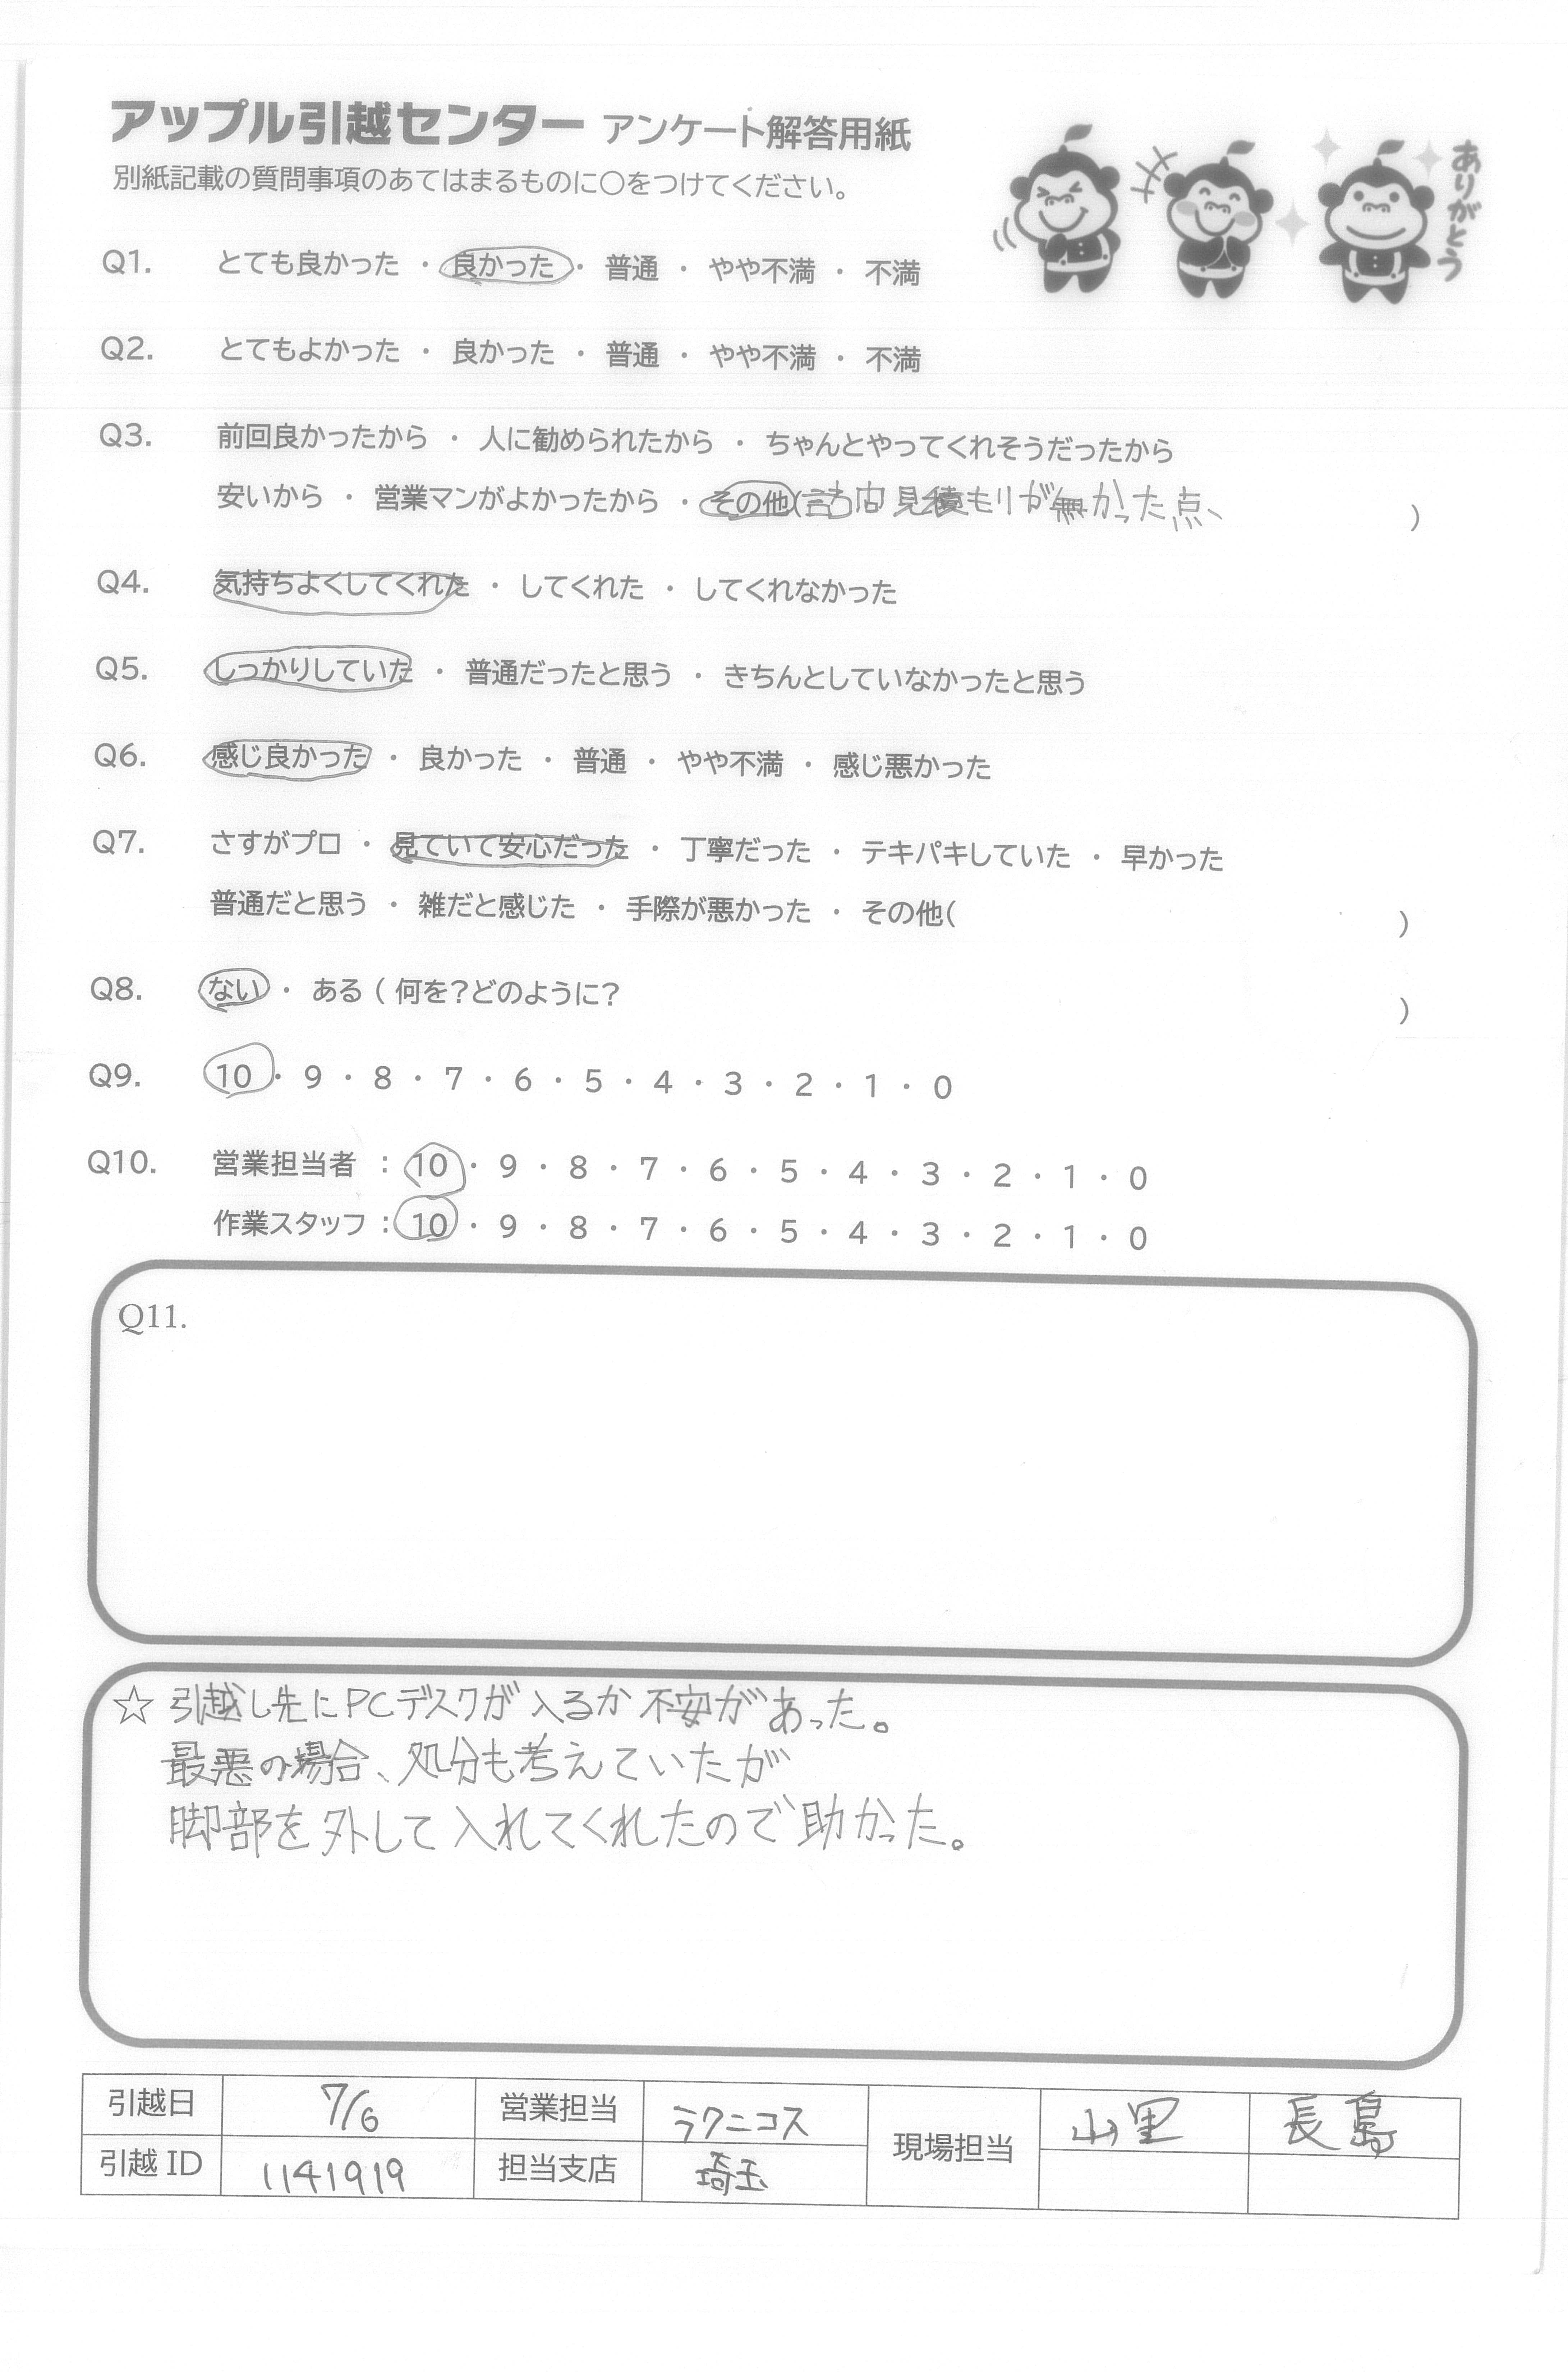 アップル引越センター アンケート解答用紙
ありがとう
別紙記載の質問事項のあてはまるものに○をつけてください。
Q1. とても良かった ・ 良かった ・ 普通 ・ やや不満 ・ 不満
Q2. とてもよかった ・ 良かった ・ 普通 ・ やや不満 ・ 不満
Q3. 前回良かったから ・ 人に勧められたから ・ ちゃんとやってくれそうだったから
安いから ・ 営業マンがよかったから ・ その他(訪問見積もりが無かった点、 )
Q4. 気持ちよくしてくれた ・ してくれた ・ してくれなかった
Q5. しっかりしていた ・ 普通だったと思う ・ きちんとしていなかったと思う
Q6. 感じ良かった ・ 良かった ・ 普通 ・ やや不満 ・ 感じ悪かった
Q7. さすがプロ ・ 見ていて安心だった ・ 丁寧だった ・ テキパキしていた ・ 早かった
普通だと思う ・ 雑だと感じた ・ 手際が悪かった ・ その他( )
Q8. ない ・ ある ( 何を?どのように? )
Q9. 10 ・ 9 ・ 8 ・ 7 ・ 6 ・ 5 ・ 4 ・ 3 ・ 2 ・ 1 ・ 0
Q10. 営業担当者 : 10 ・ 9 ・ 8 ・ 7 ・ 6 ・ 5 ・ 4 ・ 3 ・ 2 ・ 1 ・ 0
作業スタッフ : 10 ・ 9 ・ 8 ・ 7 ・ 6 ・ 5 ・ 4 ・ 3 ・ 2 ・ 1 ・ 0
Q11.
☆ 引越し先にPCデスクが入るか不安があった。
最悪の場合、処分も考えていたが
脚部を外して入れてくれたので助かった。
引越日 7/6 営業担当 ラクニコス 現場担当 山里 長島
引越 ID 1141919 担当支店 埼玉